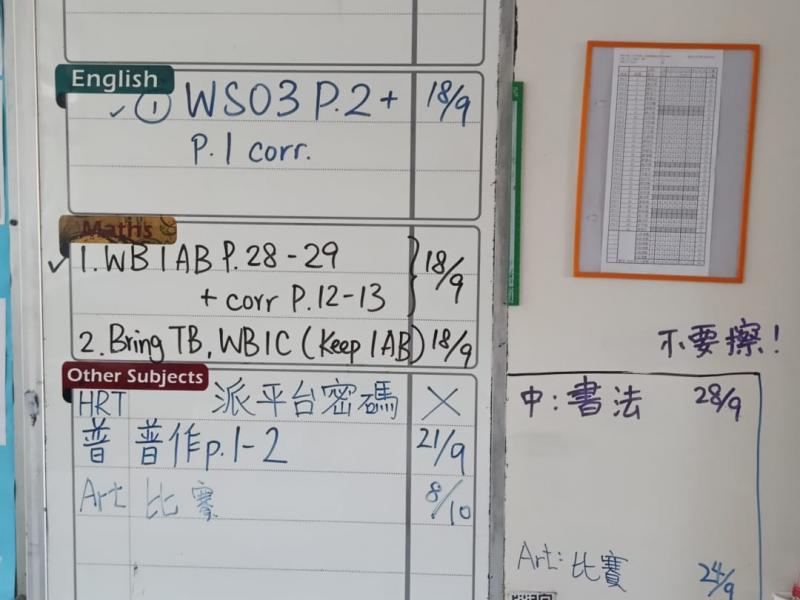 English
✓ ① WS03 P.2 + 18/9
P.1 corr.
Maths
✓ 1. WB 1AB P.28-29 } 18/9
+ corr P.12-13
2. Bring TB, WB1C (Keep 1AB) 18/9
Other Subjects
HRT 派平台密碼 X
普 普作p.1-2 21/9
Art 比賽 8/10
不要擦!
中:書法 28/9
Art: 比賽 24/9